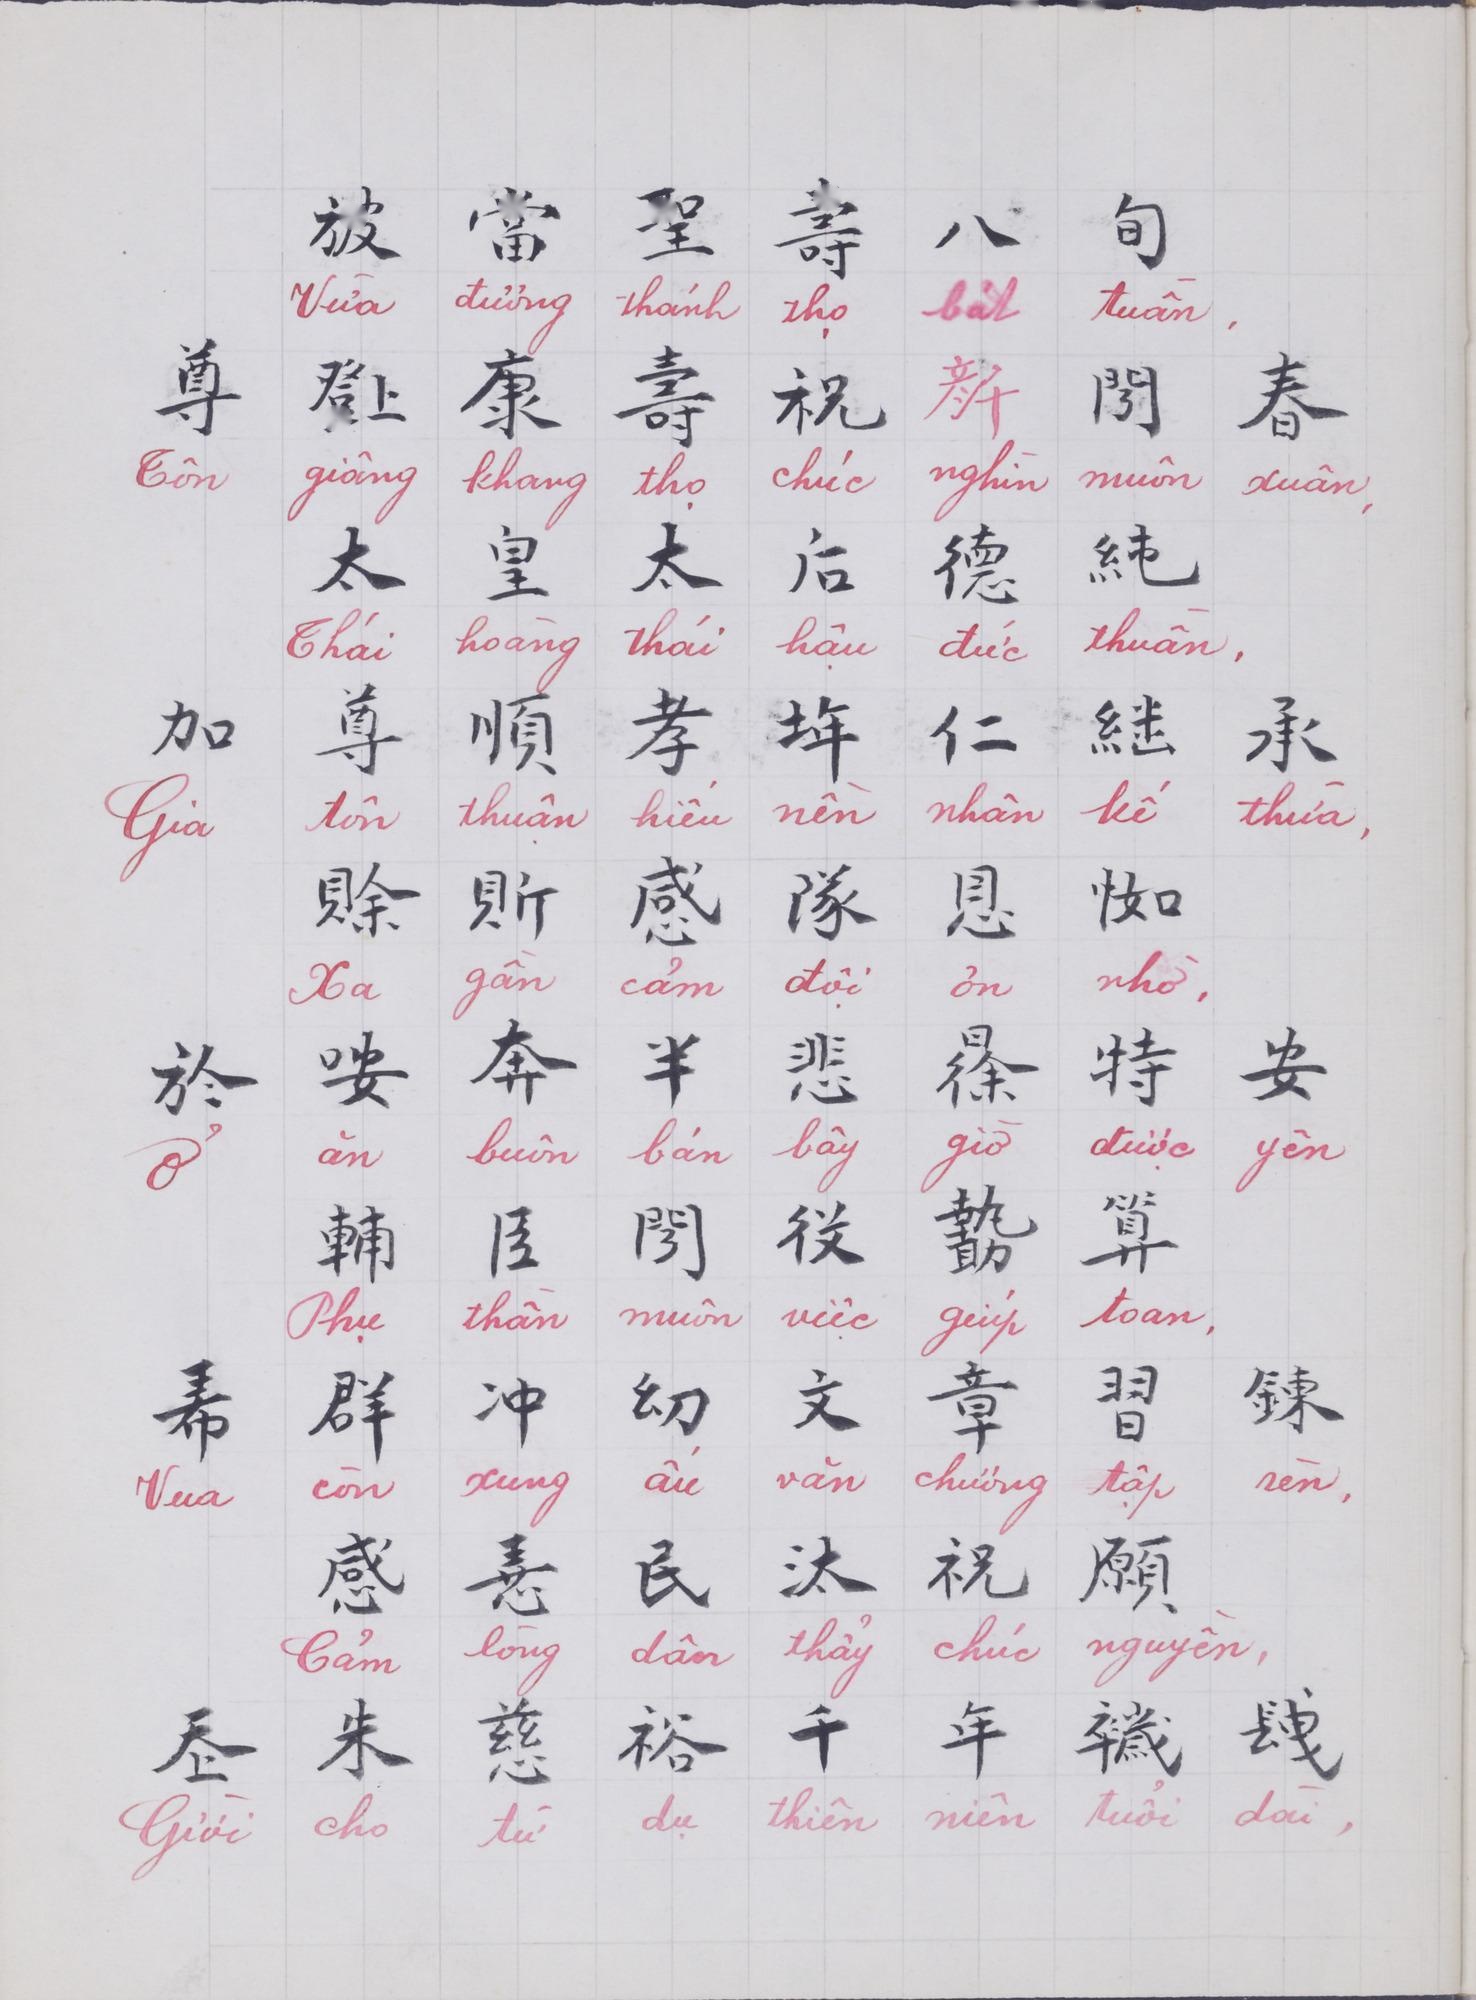 放當聖壽八旬
Vừa đương thánh thọ bát tuần,
尊𨕭康壽祝𠦳閍春
Tôn giâng khang thọ chúc nghìn muôn xuân,
太皇太后德純
Thái hoàng thái hậu đức thuần,
加尊順孝𡋂仁継承
Gia tôn thuận hiếu nền nhân kế thừa,
賒𧵆感隊恩㤇
Xa gần cảm đội ơn nhờ,
於咹奔半悲𣇞特安
Ở ăn buôn bán bây giờ được yên
輔臣閍役算
Phụ thần muôn việc giúp toan,
𢂜群冲幼文章習鍊
Vua còn xung ấu văn chương tập rèn,
感𢚸民汰祝願
Cảm lòng dân thảy chúc nguyền,
𡗶朱慈裕千年𨱽
Giời cho từ dụ thiên niên tuổi dài,